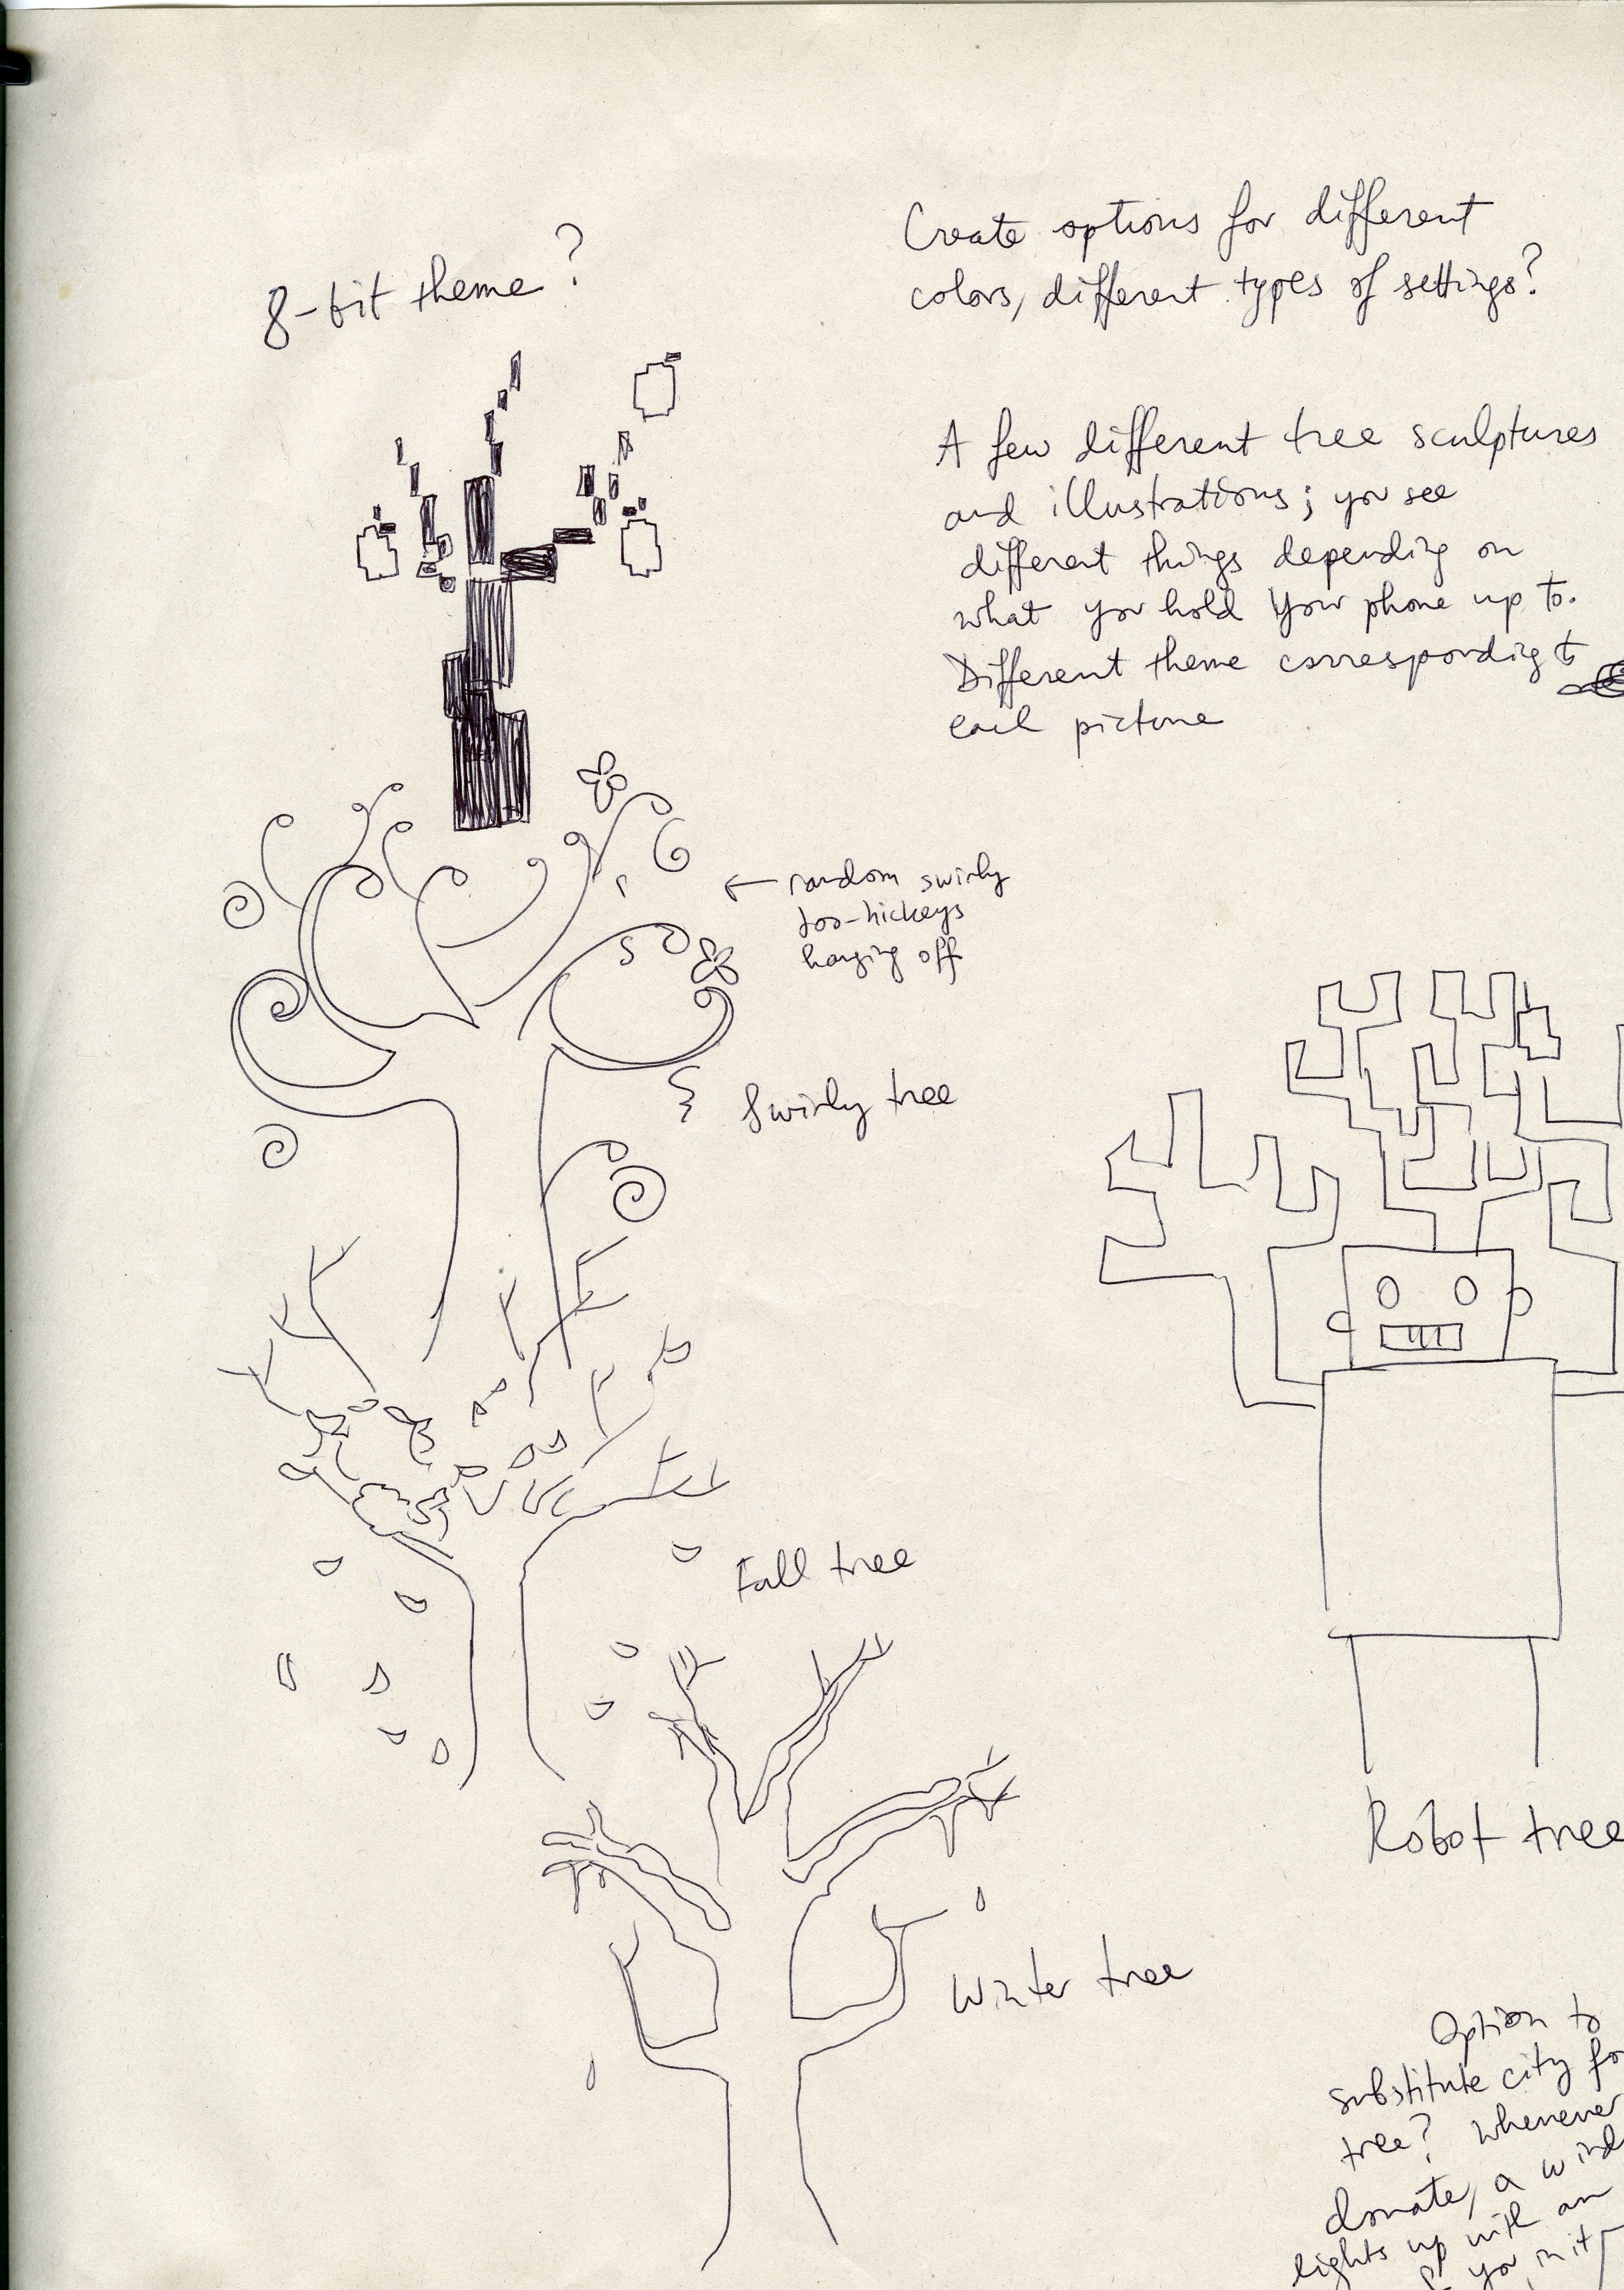 8-bit theme?
Create options for different
colors, different types of settings?
A few different tree sculptures
and illustrations; you see
different things depending on
what you hold your phone up to.
Different theme correspondig to
each picture
← random swirly
doo-hickeys
hanging off
Swirly tree
Fall tree
Robot tree
Winter tree
Option to
substitute city fo
tree? Whenever
donate, a wind
lights up with an
you in it